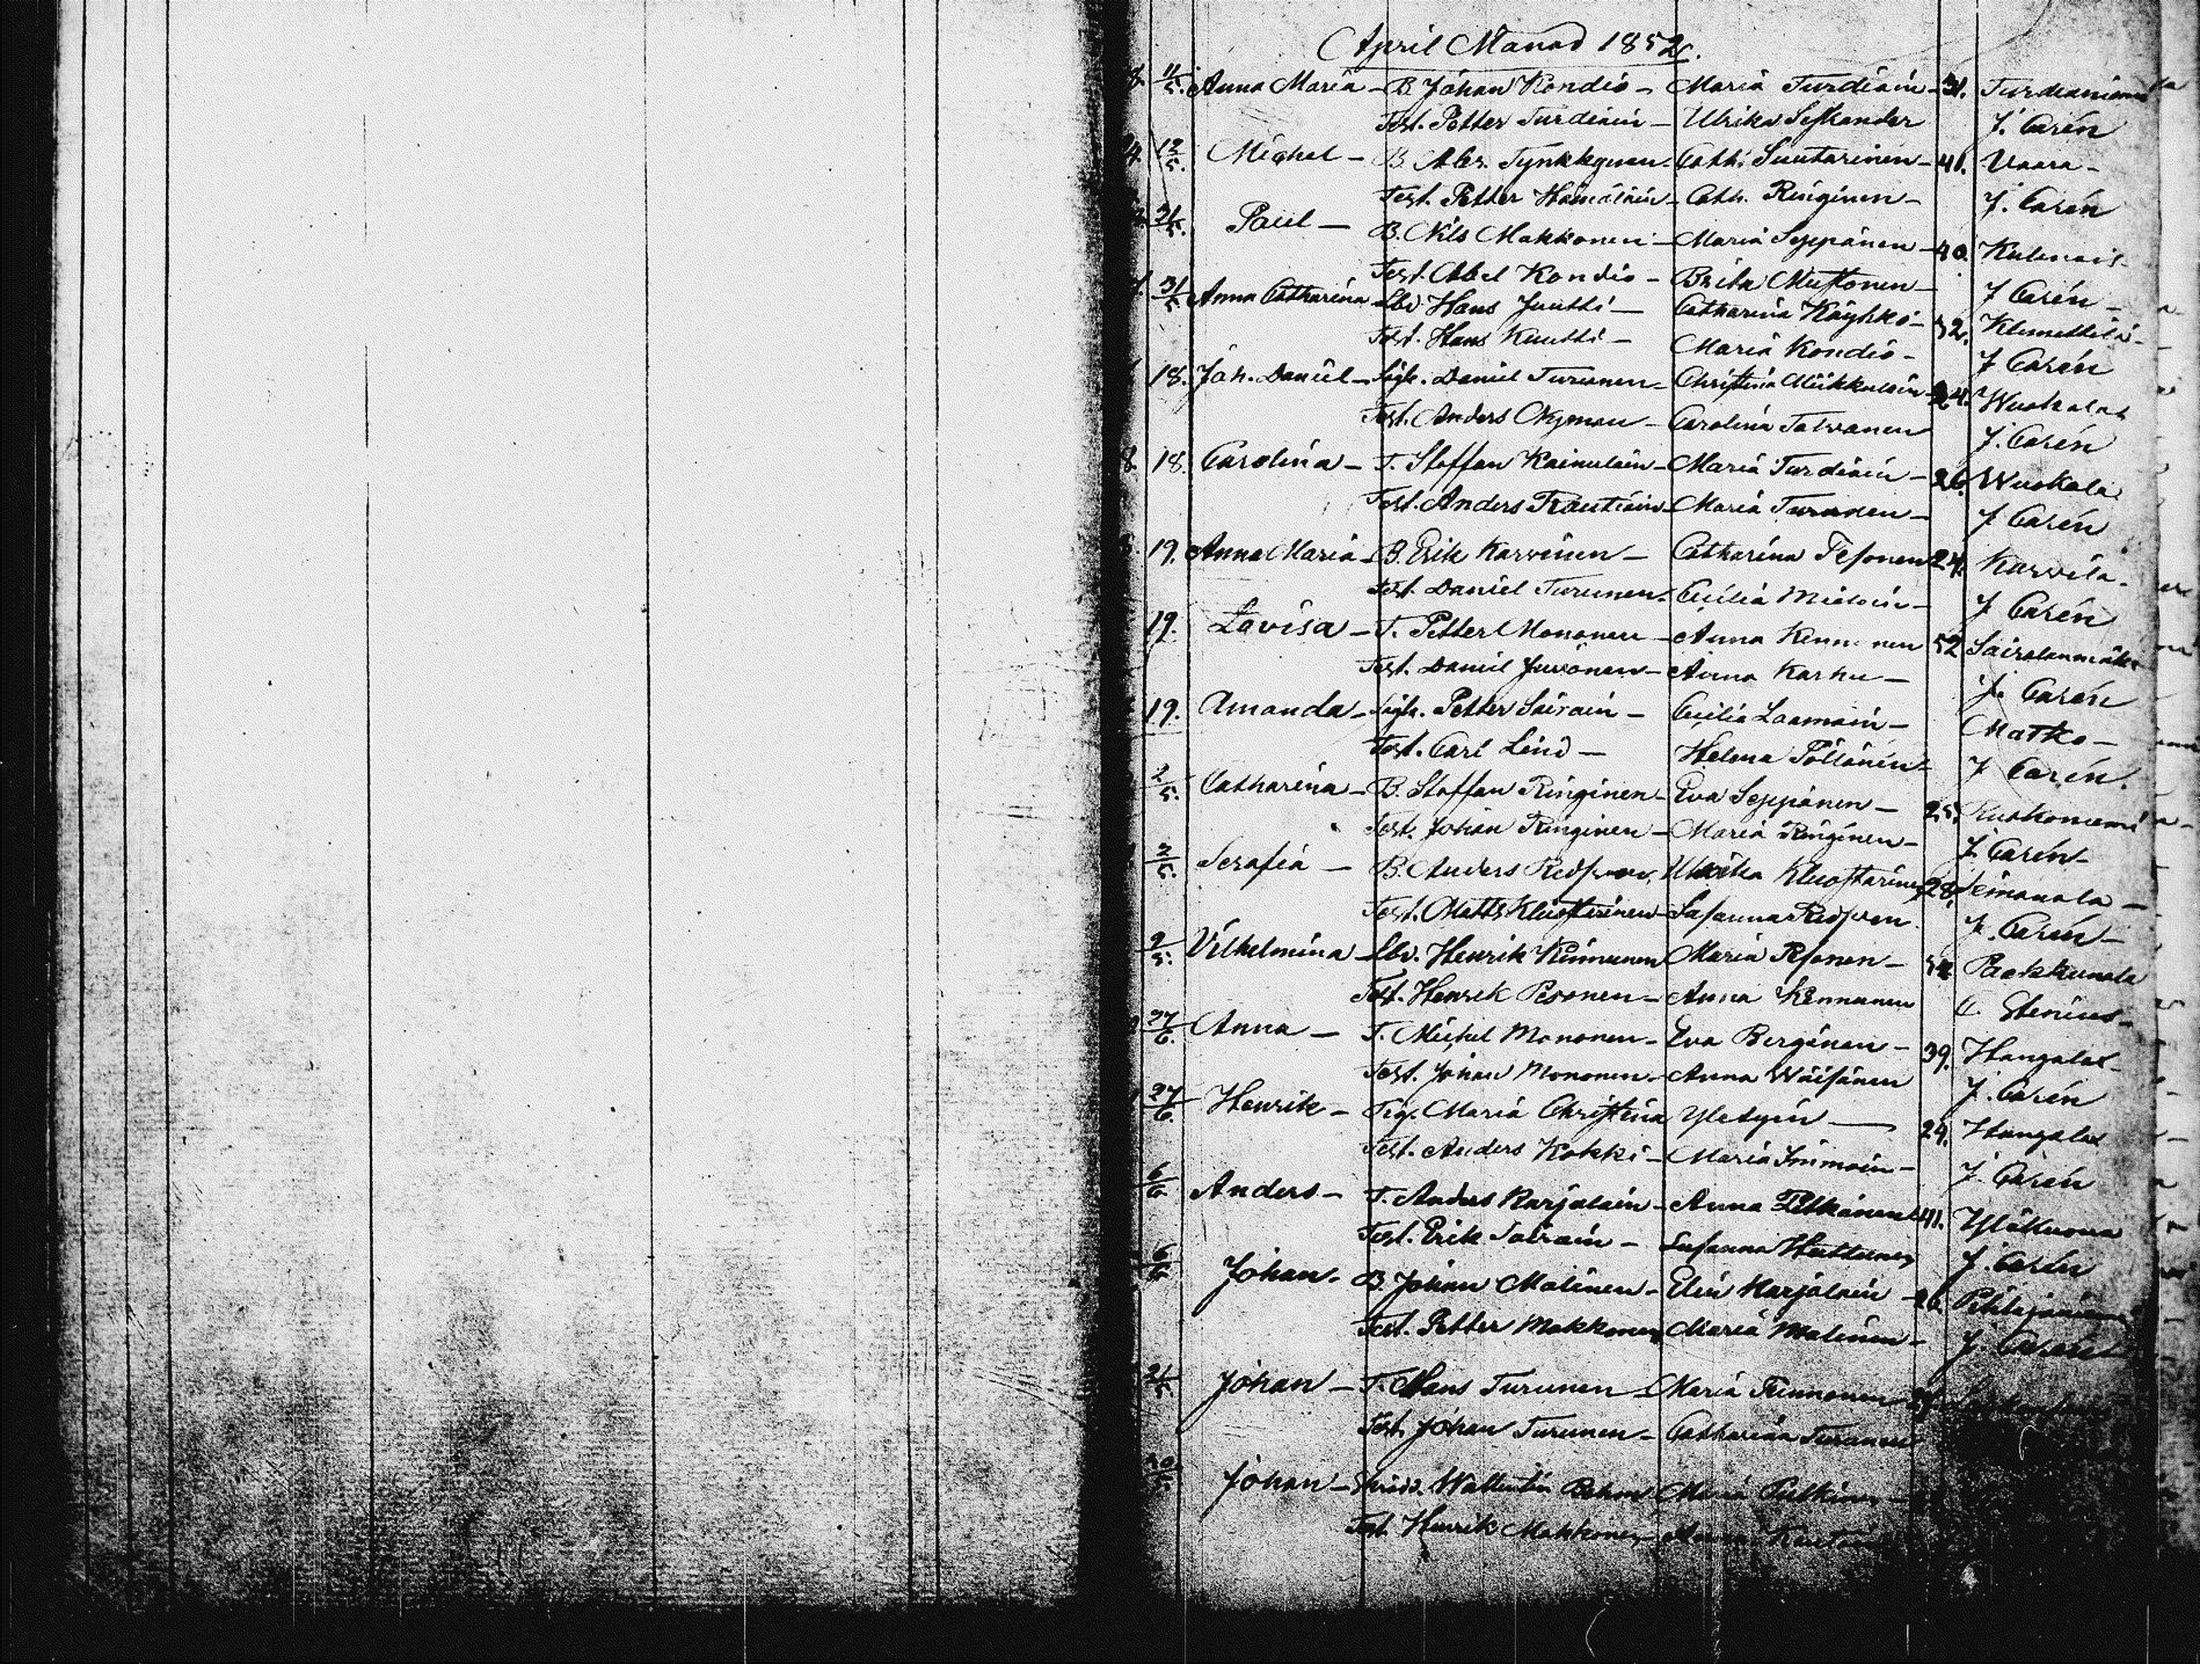 April Månad 1852.
8. 11/5. Anna Maria - B. Johan Kondio - Maria Turdiain - 31. Turdianiemi
Test. Petter Turdiain - Ulrika Seskander J. Carén
12/5. Michel - B. Alex. Tynkkynen - Cath. Suutarinen - 41. Vaara -
Test. Petter Hämäläin - Cath. Ringinen - J. Carén
21/5. Paul - B. Nils Makkonen - Maria Seppänen - 40.
Test. Abel Kondio - Brita Mustonen - J Carén -
31/5 Anna Catharina - Lbd. Hans Juutti - Catharina Käyhkö - 32. Klemettilä -
Test. Hans Kuutti - Maria Kondio - J Carén
18. Joh. Daniel - Daniel Turunen - Christina Miikkulain - 24. Wuokala
Test. Anders Nyman - Carolina Tatvanen J. Carén
8. 18. Carolina - T. Staffan Kainulain - Maria Turdiain - 26. Wuokala
Test. Anders Rautiain - Maria Turunen - J Carén
19. Anna Maria - B. Erik Karvinen - Catharina Pesonen 24. Karvila -
Test. Daniel Turunen - Cecilia Mieloin - J Carén
19. Lovisa - T. Petter Mononen - Anna Kinnunen 52 Sairalanmäki
Test. Daniel Juvonen - Anna Karhu - J. Carén
19. Amanda - Petter Sairain - Cecilia Laamain - Matko -
Test. Carl Lind - Helena Pöllänen - J Carén.
2/5. Catharina - B. Staffan Ringinen - Eva Seppänen - 25. Ruokoniemi
Test. Johan Ringinen - Maria Ringinen - J. Carén -
2/5. Serafia - B. Anders Redsven, Ulrika Kluostarinen 28. Simanala -
Test. Matts Kluostarinen - Susanna Redsven J. Carén -
9/5. Vilhelmina - Lbd. Henrik Kinnunen Maria Pesonen - 34. Paakkunala
Test. Henrik Pesonen - Anna Kinnunen C. Stenius -
27/6. Anna - T. Michel Mononen - Eva Berginen - 39. Hangalax -
Test. Johan Mononen - Anna Wäisänen J. Carén
27/6. Henrik - Pig. Maria Christina Yletyin - 29. Hangalax
Test. Anders Kokki - Maria Immoin - J. Carén
6/6. Anders - T. Anders Karjalain - Anna Pitkänen 41. Yläkuona
Test. Erik Sairain - Susanna Huttunen J. Carén
6/6. Johan - B. Johan Malinen - Elin Karjalain - 26.
Test. Petter Makkonen Maria Malinen - J. Carén
21/5 Johan - T. Hans Turunen - Maria Tiinnonen
Test. Johan Turunen - Catharina Turunen
Johan - Wallentin Bohm Maria
Test. Henrik Makkonen -